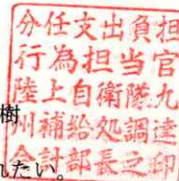 分任支出負担
行為担当官
樹
陸上自衛隊九
州補給処調達
会計部長之印
れたい。